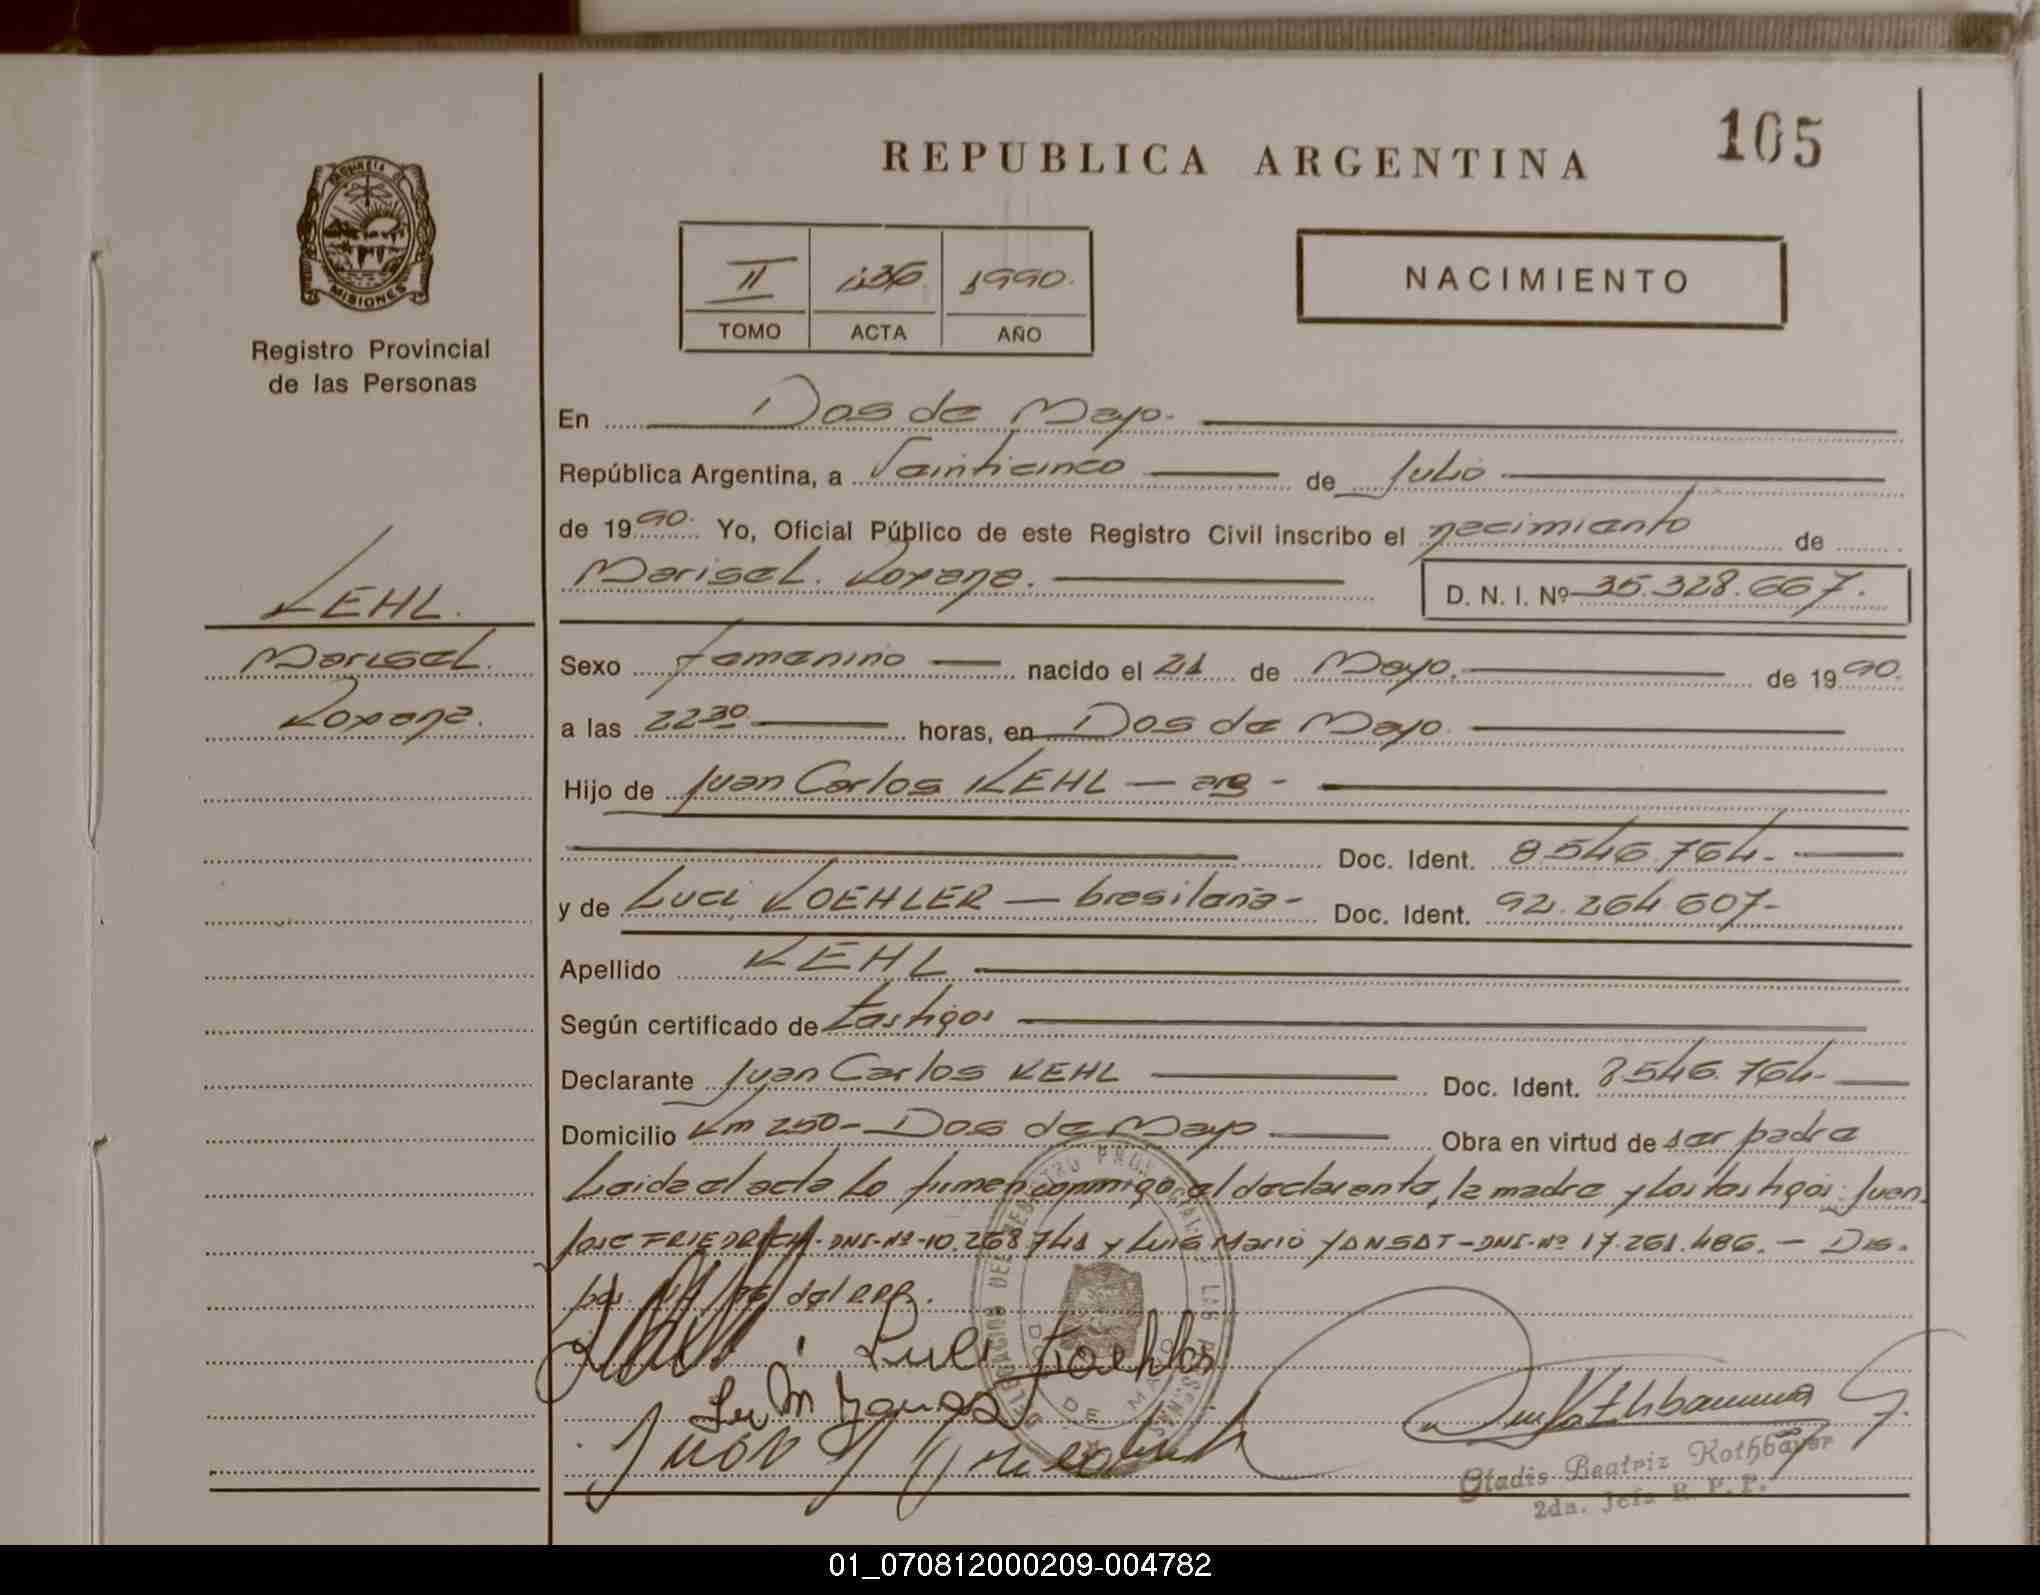 REPUBLICA ARGENTINA
105
MISIONES
Registro Provincial
de las Personas
II 136 1990.
TOMO ACTA AÑO
NACIMIENTO
En Dos de Mayo.
República Argentina, a Veinticinco de Julio
de 1990. Yo, Oficial Público de este Registro Civil inscribo el nacimiento de
Marisel. Roxana. D. N. I. Nº 35.328.667.
KEHL.
Marisel.
Roxana.
Sexo femenino nacido el 21 de Mayo. de 1990.
a las 22 30 horas, en Dos de Mayo.
Hijo de Juan Carlos KEHL — arg -
Doc. Ident. 8.546.764-
y de Luci KOEHLER — brasilana - Doc. Ident. 92.264.607-
Apellido KEHL
Según certificado de testigos
Declarante Juan Carlos KEHL Doc. Ident. 8.546.764-
Domicilio Km 250- Dos de Mayo Obra en virtud de ser padre
Leida el acta la firman conmigo el declarante, la madre y los testigos: Juan
Jose FRIEDRICH - DNI-Nº-10.268.741 y Luis Mario YANSAT - DNI-Nº 17.261.486. - Dis.
del RPP.
Gladis Beatriz Rothbayer
2da. Jefa R. P. P.
01_070812000209-004782